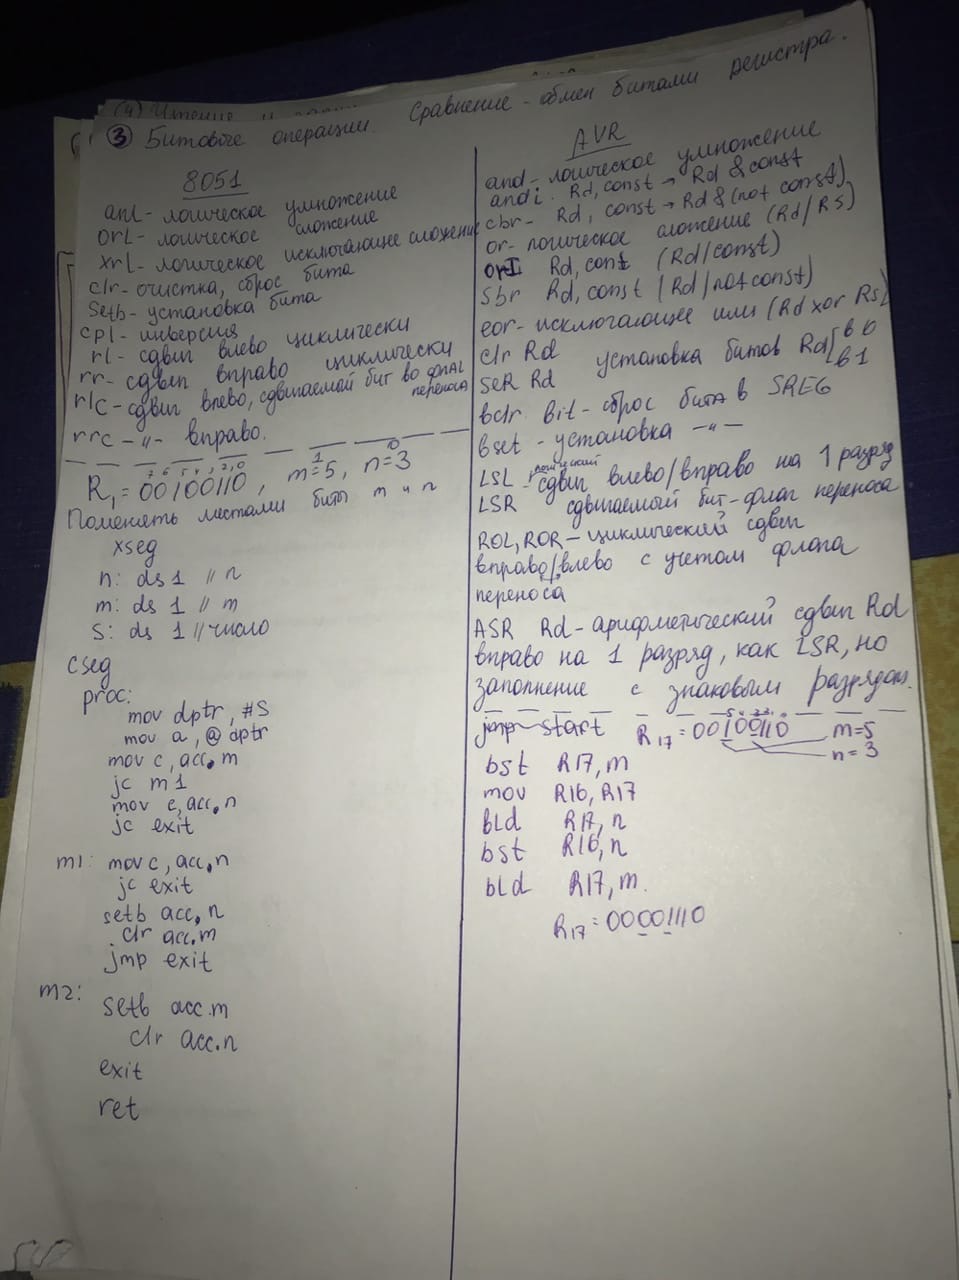 ③ Битовые операции. Сравнение - обмен битами регистра.
8051
anl - логическое умножение
orl - логическое сложение
xrl - логическое исключающее сложение
clr - очистка, сброс бита
setb - установка бита
cpl - инверсия
rl - сдвиг влево циклически
rr - сдвиг вправо циклически
rlc - сдвиг влево, сдвигаемой бит во флаг
переноса
rrc -〃- вправо.
7 6 5 4 3 2 1 0
1 0
R1 = 00100110, m=5, n=3
Поменять местами биты m и n
xseg
n: ds 1 // n
m: ds 1 // m
S: ds 1 // число
cseg
proc:
mov dptr, #S
mov a, @ dptr
mov c, acc.m
jc m1
mov c, acc.n
jc exit
m1: mov c, acc.n
jc exit
setb acc.n
clr acc.m
jmp exit
m2:
setb acc.m
clr acc.n
exit
ret
AVR
and - логическое умножение
andi Rd, const → Rd & const
cbr - Rd, const → Rd & (not const)
or - логическое сложение (Rd/RS)
orI Rd, const (Rd/const)
sbr Rd, const (Rd/not const)
eor - исключающее или (Rd xor Rs)
clr Rd
seR Rd установка битов Rd [в 0
в 1
bclr Bit - сброс бита в SREG
bset - установка -〃-
логический
LSL - сдвиг влево/вправо на 1 разряд
LSR сдвигаемый бит - флаг переноса
ROL, ROR - циклический сдвиг
вправо/влево с учетом флага
переноса
ASR Rd - арифметический сдвиг Rd
вправо на 1 разряд, как LSR, но
заполнение с знаковым разрядом.
jmp start R17 = 00100110 m=5
n=3
bst R17, m
mov R16, R17
bld R17, n
bst R16, n
bld R17, m.
R17 = 00001110